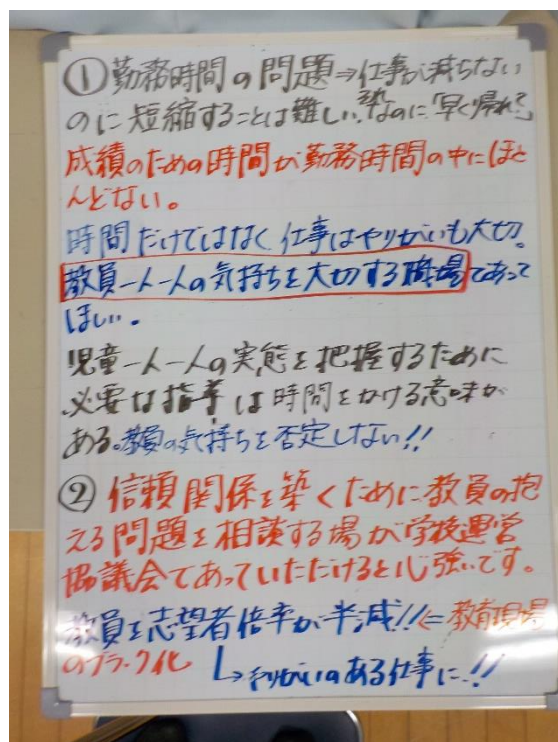 ①勤務時間の問題⇒仕事が減らない
のに短縮することは難しい。なのに「早く帰れ?」
成績のための時間が勤務時間の中にほと
んどない。
時間だけではなく仕事はやりがいも大切。
教員一人一人の気持ちを大切する職場であって
ほしい。
児童一人一人の実態を把握するために
必要な指導は時間をかける意味が
ある。教員の気持ちを否定しない!!
②信頼関係を築くために教員の抱
える問題を相談する場が学校運営
協議会であっていただけると心強いです。
教員を志望者倍率が半減!!⇐教育現場
のブラック化 ↳やりがいのある仕事に!!